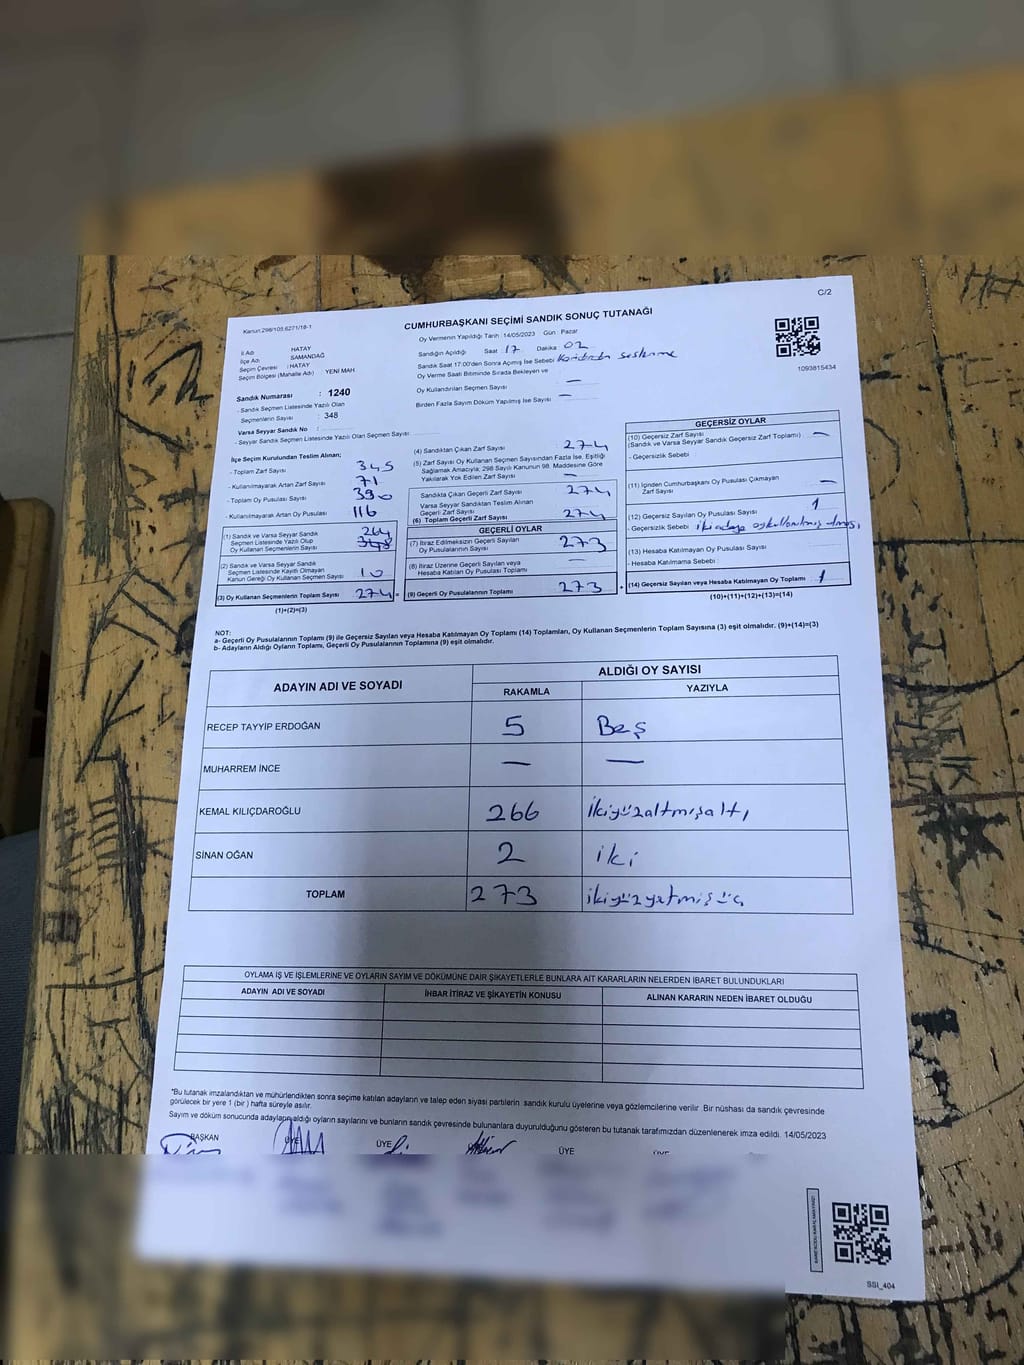 C/2
Kanun:298/105.6271/18-1
CUMHURBAŞKANI SEÇİMİ SANDIK SONUÇ TUTANAĞI
Oy Vermenin Yapıldığı Tarih : 14/05/2023 Gün : Pazar
İl Adı HATAY
İlçe Adı SAMANDAĞ
Seçim Çevresi : HATAY
Seçim Bölgesi (Mahalle Adı) YENİ MAH
Sandığın Açıldığı Saat 17 Dakika 02
Sandık Saat 17:00'den Sonra Açılmış İse Sebebi
Oy Verme Saati Bitiminde Sırada Bekleyen ve
Oy Kullandırılan Seçmen Sayısı —
Birden Fazla Sayım Döküm Yapılmış İse Sayısı —
1093815434
Sandık Numarası : 1240
- Sandık Seçmen Listesinde Yazılı Olan
Seçmenlerin Sayısı : 348
Varsa Seyyar Sandık No :
- Seyyar Sandık Seçmen Listesinde Yazılı Olan Seçmen Sayısı
İlçe Seçim Kurulundan Teslim Alınan;
- Toplam Zarf Sayısı 345
- Kullanılmayarak Artan Zarf Sayısı 71
- Toplam Oy Pusulası Sayısı 390
- Kullanılmayarak Artan Oy Pusulası 116
(1) Sandık ve Varsa Seyyar Sandık
Seçmen Listesinde Yazılı Olup
Oy Kullanan Seçmenlerin Sayısı 264
348
(2) Sandık ve Varsa Seyyar Sandık
Seçmen Listesinde Kayıtlı Olmayan
Kanun Gereği Oy Kullanan Seçmen Sayısı 10
(3) Oy Kullanan Seçmenlerin Toplam Sayısı 274 =
(1)+(2)=(3)
(4) Sandıktan Çıkan Zarf Sayısı 274
(5) Zarf Sayısı Oy Kullanan Seçmen Sayısından Fazla İse, Eşitliği
Sağlamak Amacıyla; 298 Sayılı Kanunun 98. Maddesine Göre
Yakılarak Yok Edilen Zarf Sayısı —
Sandıkta Çıkan Geçerli Zarf Sayısı 274
Varsa Seyyar Sandıktan Teslim Alınan
Geçerli Zarf Sayısı
(6) Toplam Geçerli Zarf Sayısı 274
GEÇERLİ OYLAR
(7) İtiraz Edilmeksizin Geçerli Sayılan
Oy Pusulalarının Sayısı 273
(8) İtiraz Üzerine Geçerli Sayılan veya
Hesaba Katılan Oy Pusulası Toplamı —
(9) Geçerli Oy Pusulalarının Toplamı 273 +
GEÇERSİZ OYLAR
(10) Geçersiz Zarf Sayısı
(Sandık ve Varsa Seyyar Sandık Geçersiz Zarf Toplamı) —
- Geçersizlik Sebebi :
(11) İçinden Cumhurbaşkanı Oy Pusulası Çıkmayan
Zarf Sayısı —
(12) Geçersiz Sayılan Oy Pusulası Sayısı 1
- Geçersizlik Sebebi : iki adaya oy kullanılmış olması
(13) Hesaba Katılmayan Oy Pusulası Sayısı
- Hesaba Katılmama Sebebi :
(14) Geçersiz Sayılan veya Hesaba Katılmayan Oy Toplamı 1
(10)+(11)+(12)+(13)=(14)
NOT:
a- Geçerli Oy Pusulalarının Toplamı (9) ile Geçersiz Sayılan veya Hesaba Katılmayan Oy Toplamı (14) Toplamları, Oy Kullanan Seçmenlerin Toplam Sayısına (3) eşit olmalıdır. (9)+(14)=(3)
b- Adayların Aldığı Oyların Toplamı, Geçerli Oy Pusulalarının Toplamına (9) eşit olmalıdır.
ADAYIN ADI VE SOYADI
ALDIĞI OY SAYISI
RAKAMLA YAZIYLA
RECEP TAYYİP ERDOĞAN 5 Beş
MUHARREM İNCE — —
KEMAL KILIÇDAROĞLU 266 İkiyüzaltmışaltı
SİNAN OĞAN 2 iki
TOPLAM 273 ikiyüzyetmişüç
OYLAMA İŞ VE İŞLEMLERİNE VE OYLARIN SAYIM VE DÖKÜMÜNE DAİR ŞİKAYETLERLE BUNLARA AİT KARARLARIN NELERDEN İBARET BULUNDUKLARI
ADAYIN ADI VE SOYADI İHBAR İTİRAZ VE ŞİKAYETİN KONUSU ALINAN KARARIN NEDEN İBARET OLDUĞU
*Bu tutanak imzalandıktan ve mühürlendikten sonra seçime katılan adayların ve talep eden siyasi partilerin sandık kurulu üyelerine veya gözlemcilerine verilir. Bir nüshası da sandık çevresinde
görülecek bir yere 1 (bir ) hafta süreyle asılır.
Sayım ve döküm sonucunda adayların aldığı oyların sayılarını ve bunların sandık çevresinde bulunanlara duyurulduğunu gösteren bu tutanak tarafımızdan düzenlenerek imza edildi. 14/05/2023
BAŞKAN ÜYE ÜYE ÜYE
SSİ_404